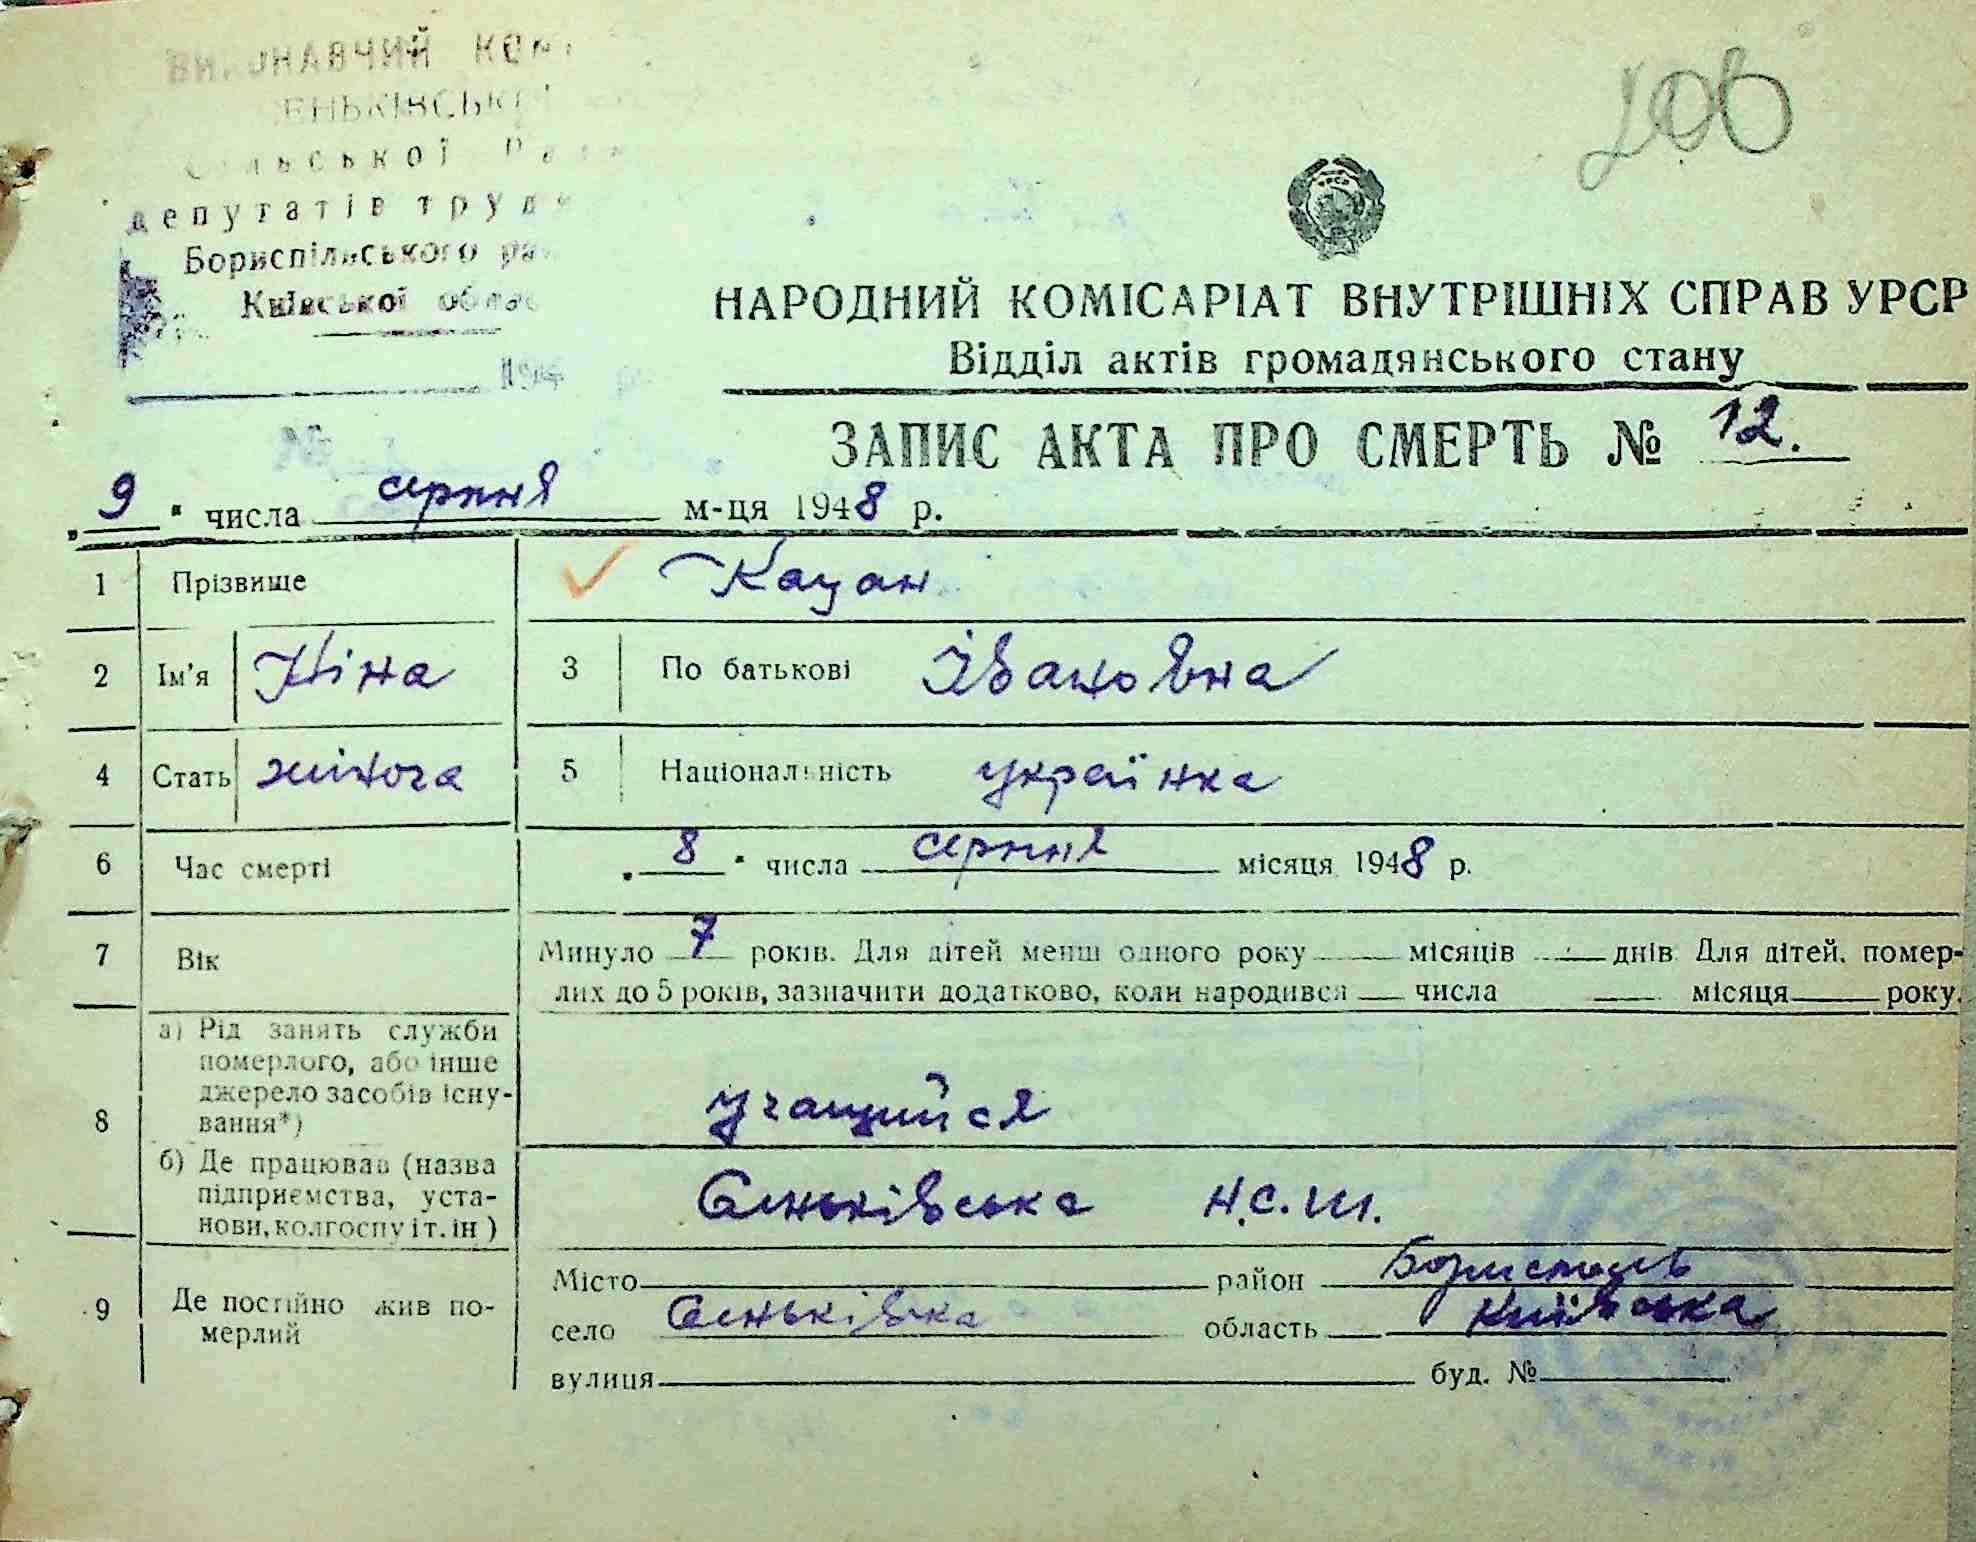 ВИКОНАВЧИЙ КОМ
ЕНЬКІВСЬКОЇ
Сільської Рад
депутатів труд
Бориспільського ра
Київської облас
194 р
200
НАРОДНИЙ КОМІСАРІАТ ВНУТРІШНІХ СПРАВ УРСР
Відділ актів громадянського стану
ЗАПИС АКТА ПРО СМЕРТЬ № 12.
№
„9" числа серпня м-ця 1948 р.
1 Прізвище Кацан
2 Ім'я Ніна 3 По батькові Івановна
4 Стать жіноча 5 Національність українка
6 Час смерті „8" числа серпня місяця 1948 р.
7 Вік Минуло 7 років. Для дітей менш одного року — місяців — днів Для дітей, помер-
лих до 5 років, зазначити додатково, коли народився — числа — місяця — року.
8 а) Рід занять служби
померлого, або інше
джерело засобів існу-
вання*) учащийся
б) Де працював (назва
підприємства, уста-
нови, колгоспу і т. ін) Сеньківська Н.С.Ш.
9 Де постійно жив по-
мерлий
Місто район Бориспіль
село Сеньківка область Київська
вулиця буд. №